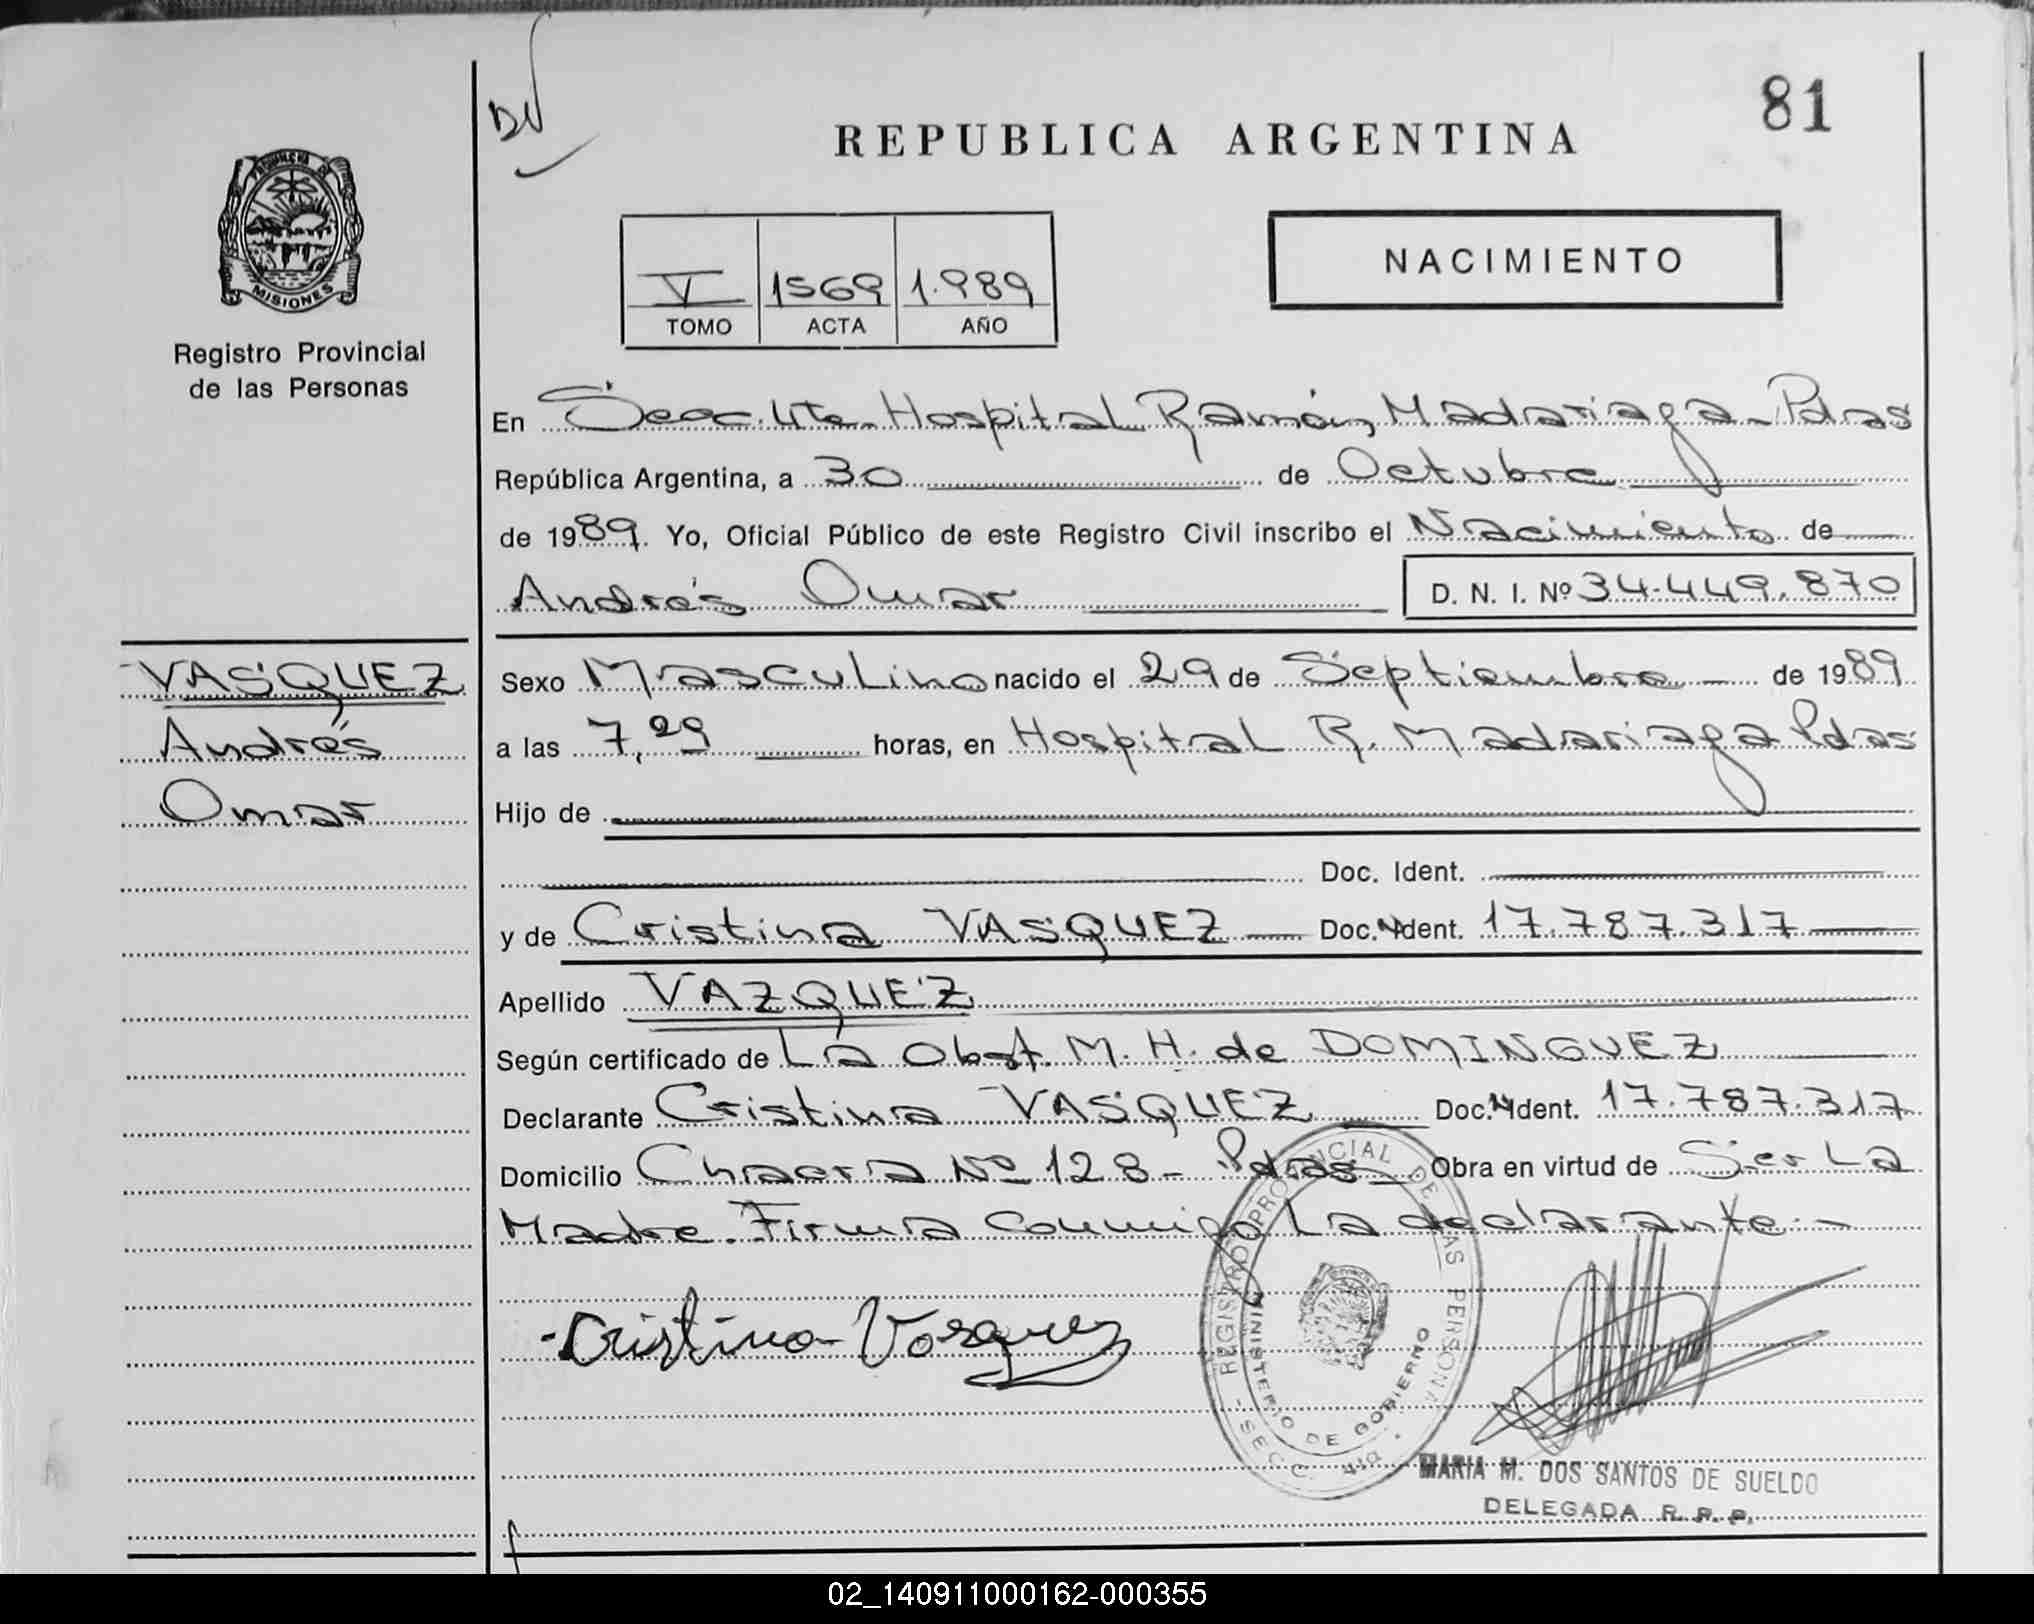 81
REPUBLICA ARGENTINA
PROVINCIA DE
MISIONES
Registro Provincial
de las Personas
V 1569 1.989
TOMO ACTA AÑO
NACIMIENTO
En Secc. 4ta. Hospital Ramón Madariaga - Pdas
República Argentina, a 30 de Octubre
de 1989. Yo, Oficial Público de este Registro Civil inscribo el Nacimiento de
Andrés Omar D. N. I. Nº 34.449.870
VASQUEZ
Andrés
Omar
Sexo Masculino nacido el 29 de Septiembre de 1989
a las 7,29 horas, en Hospital R. Madariaga Pdas
Hijo de
Doc. Ident.
y de Cristina VASQUEZ Doc. Ident. 17.787.317
Apellido VAZQUEZ
Según certificado de La Obst. M. H. de DOMINGUEZ
Declarante Cristina VASQUEZ Doc. Ident. 17.787.317
Domicilio Chacra Nº 128 - Pdas - Obra en virtud de Ser La
Madre. Firma conmigo La declarante.-
Cristina Vasquez
REGISTRO PROVINCIAL DE LAS PERSONAS
MINISTERIO DE GOBIERNO
- SECC. 4ta.
MARIA M. DOS SANTOS DE SUELDO
DELEGADA R. P. P.
02_140911000162-000355